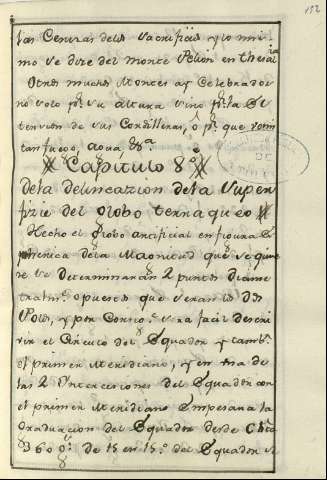 152
las Cenizas delos Sacrificios y lo mis
mo se dize del monte Pelion en Thesalia
Otros muchos Montes ay Celebrados
no solo pr. su altura sino pr. la Ex
tension de sus Cordilleras, ò pr. que vomi
tan fuego, agua, &a.
Capitulo 8º
dela delineazion dela Super
fizie del Globo terraqueo
Hecho el Globo artificial en figura Es
pherica dela Magnitud que se quie
re se Determinaran 2 puntos diame
tralmte. opuestos que seran los
Polos, y por Consigte. sera facil descri
vir el Circulo del Equador y tambn.
el primer Meridiano, y en una de
las 2 Yntercesiones del Equador con
el primer Meridiano Empesara la
Graduacion del Equador desde
360 gs. de 15 en 15 gs. del Equador